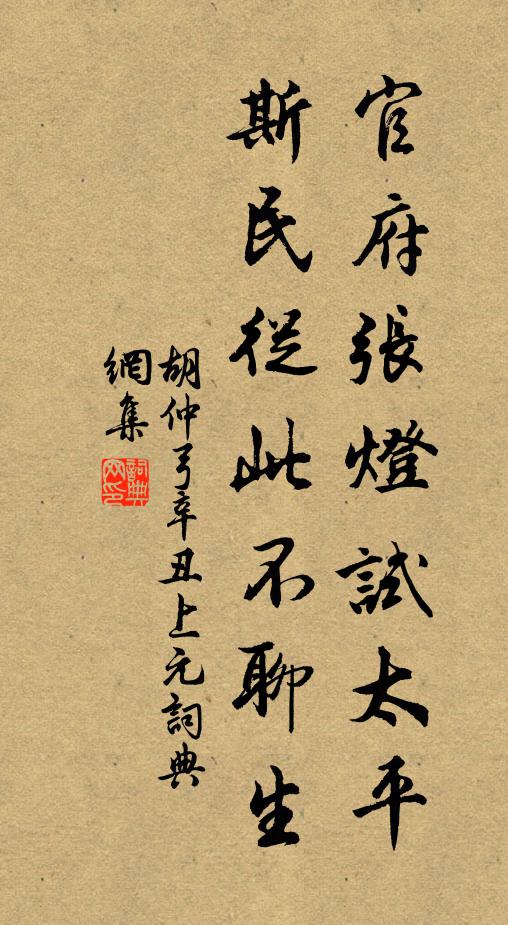 官府張燈試太平
斯民從此不聊生
胡仲弓辛丑上元詞典
網集
詞典網印